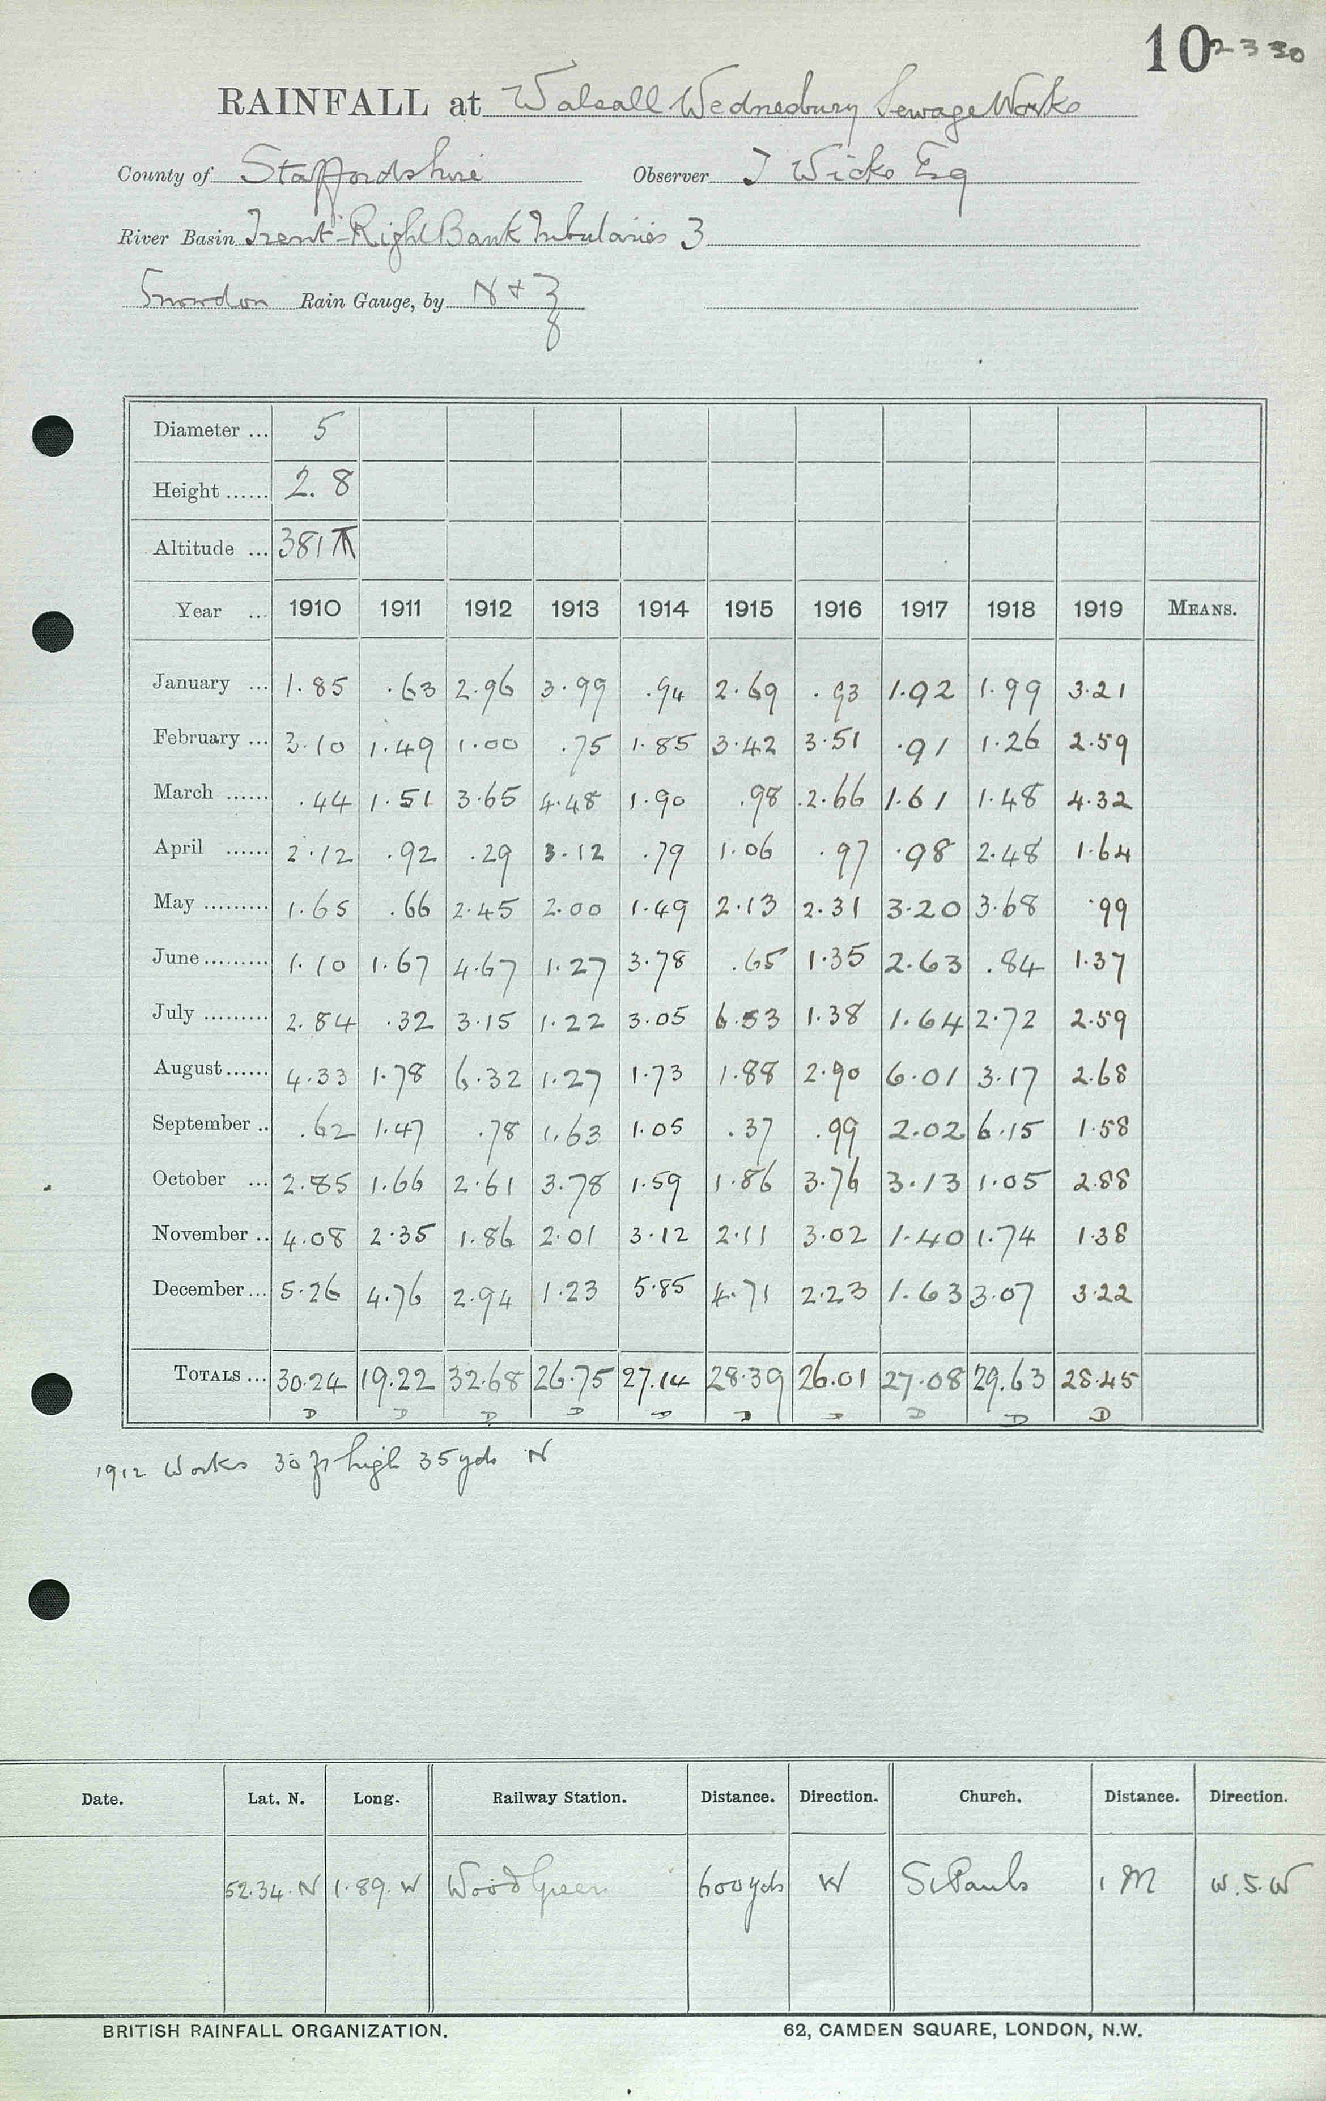 10 2330
RAINFALL at Walsall Wednesbury Sewage Works
County of Staffordshire Observer J Wicks Esq
River Basin Trent-Right Bank Tributaries 3
Snowdon Rain Gauge, by N & Z
Diameter ... 5
Height ...... 2. 8
Altitude ... 381
Year ... 1910 1911 1912 1913 1914 1915 1916 1917 1918 1919 MEANS.
January ... 1.85 .63 2.96 3.99 .94 2.69 .93 1.92 1.99 3.21
February ... 3.10 1.49 1.00 .75 1.85 3.42 3.51 .91 1.26 2.59
March ...... .44 1.51 3.65 4.48 1.90 .98 2.66 1.61 1.48 4.32
April ...... 2.12 .92 .29 3.12 .79 1.06 .97 .98 2.48 1.64
May ......... 1.65 .66 2.45 2.00 1.49 2.13 2.31 3.20 3.68 .99
June ......... 1.10 1.67 4.67 1.27 3.78 .65 1.35 2.63 .84 1.37
July ......... 2.84 .32 3.15 1.22 3.05 6.53 1.38 1.64 2.72 2.59
August ...... 4.33 1.78 6.32 1.27 1.73 1.88 2.90 6.01 3.17 2.68
September .. .62 1.47 .78 1.63 1.05 .37 .99 2.02 6.15 1.58
October ... 2.85 1.66 2.61 3.78 1.59 1.86 3.76 3.13 1.05 2.88
November .. 4.08 2.35 1.86 2.01 3.12 2.11 3.02 1.40 1.74 1.38
December ... 5.26 4.76 2.94 1.23 5.85 4.71 2.23 1.63 3.07 3.22
TOTALS ... 30.24 19.22 32.68 26.75 27.14 28.39 26.01 27.08 29.63 28.45
D D D D D D D D D D
1912 Works 30 ft high 35 yds N
Date. Lat. N. Long. Railway Station. Distance. Direction. Church. Distance. Direction.
52.34.N 1.89.W Wood Green 600yds W St Pauls 1 M W.S.W
BRITISH RAINFALL ORGANIZATION. 62, CAMDEN SQUARE, LONDON, N.W.